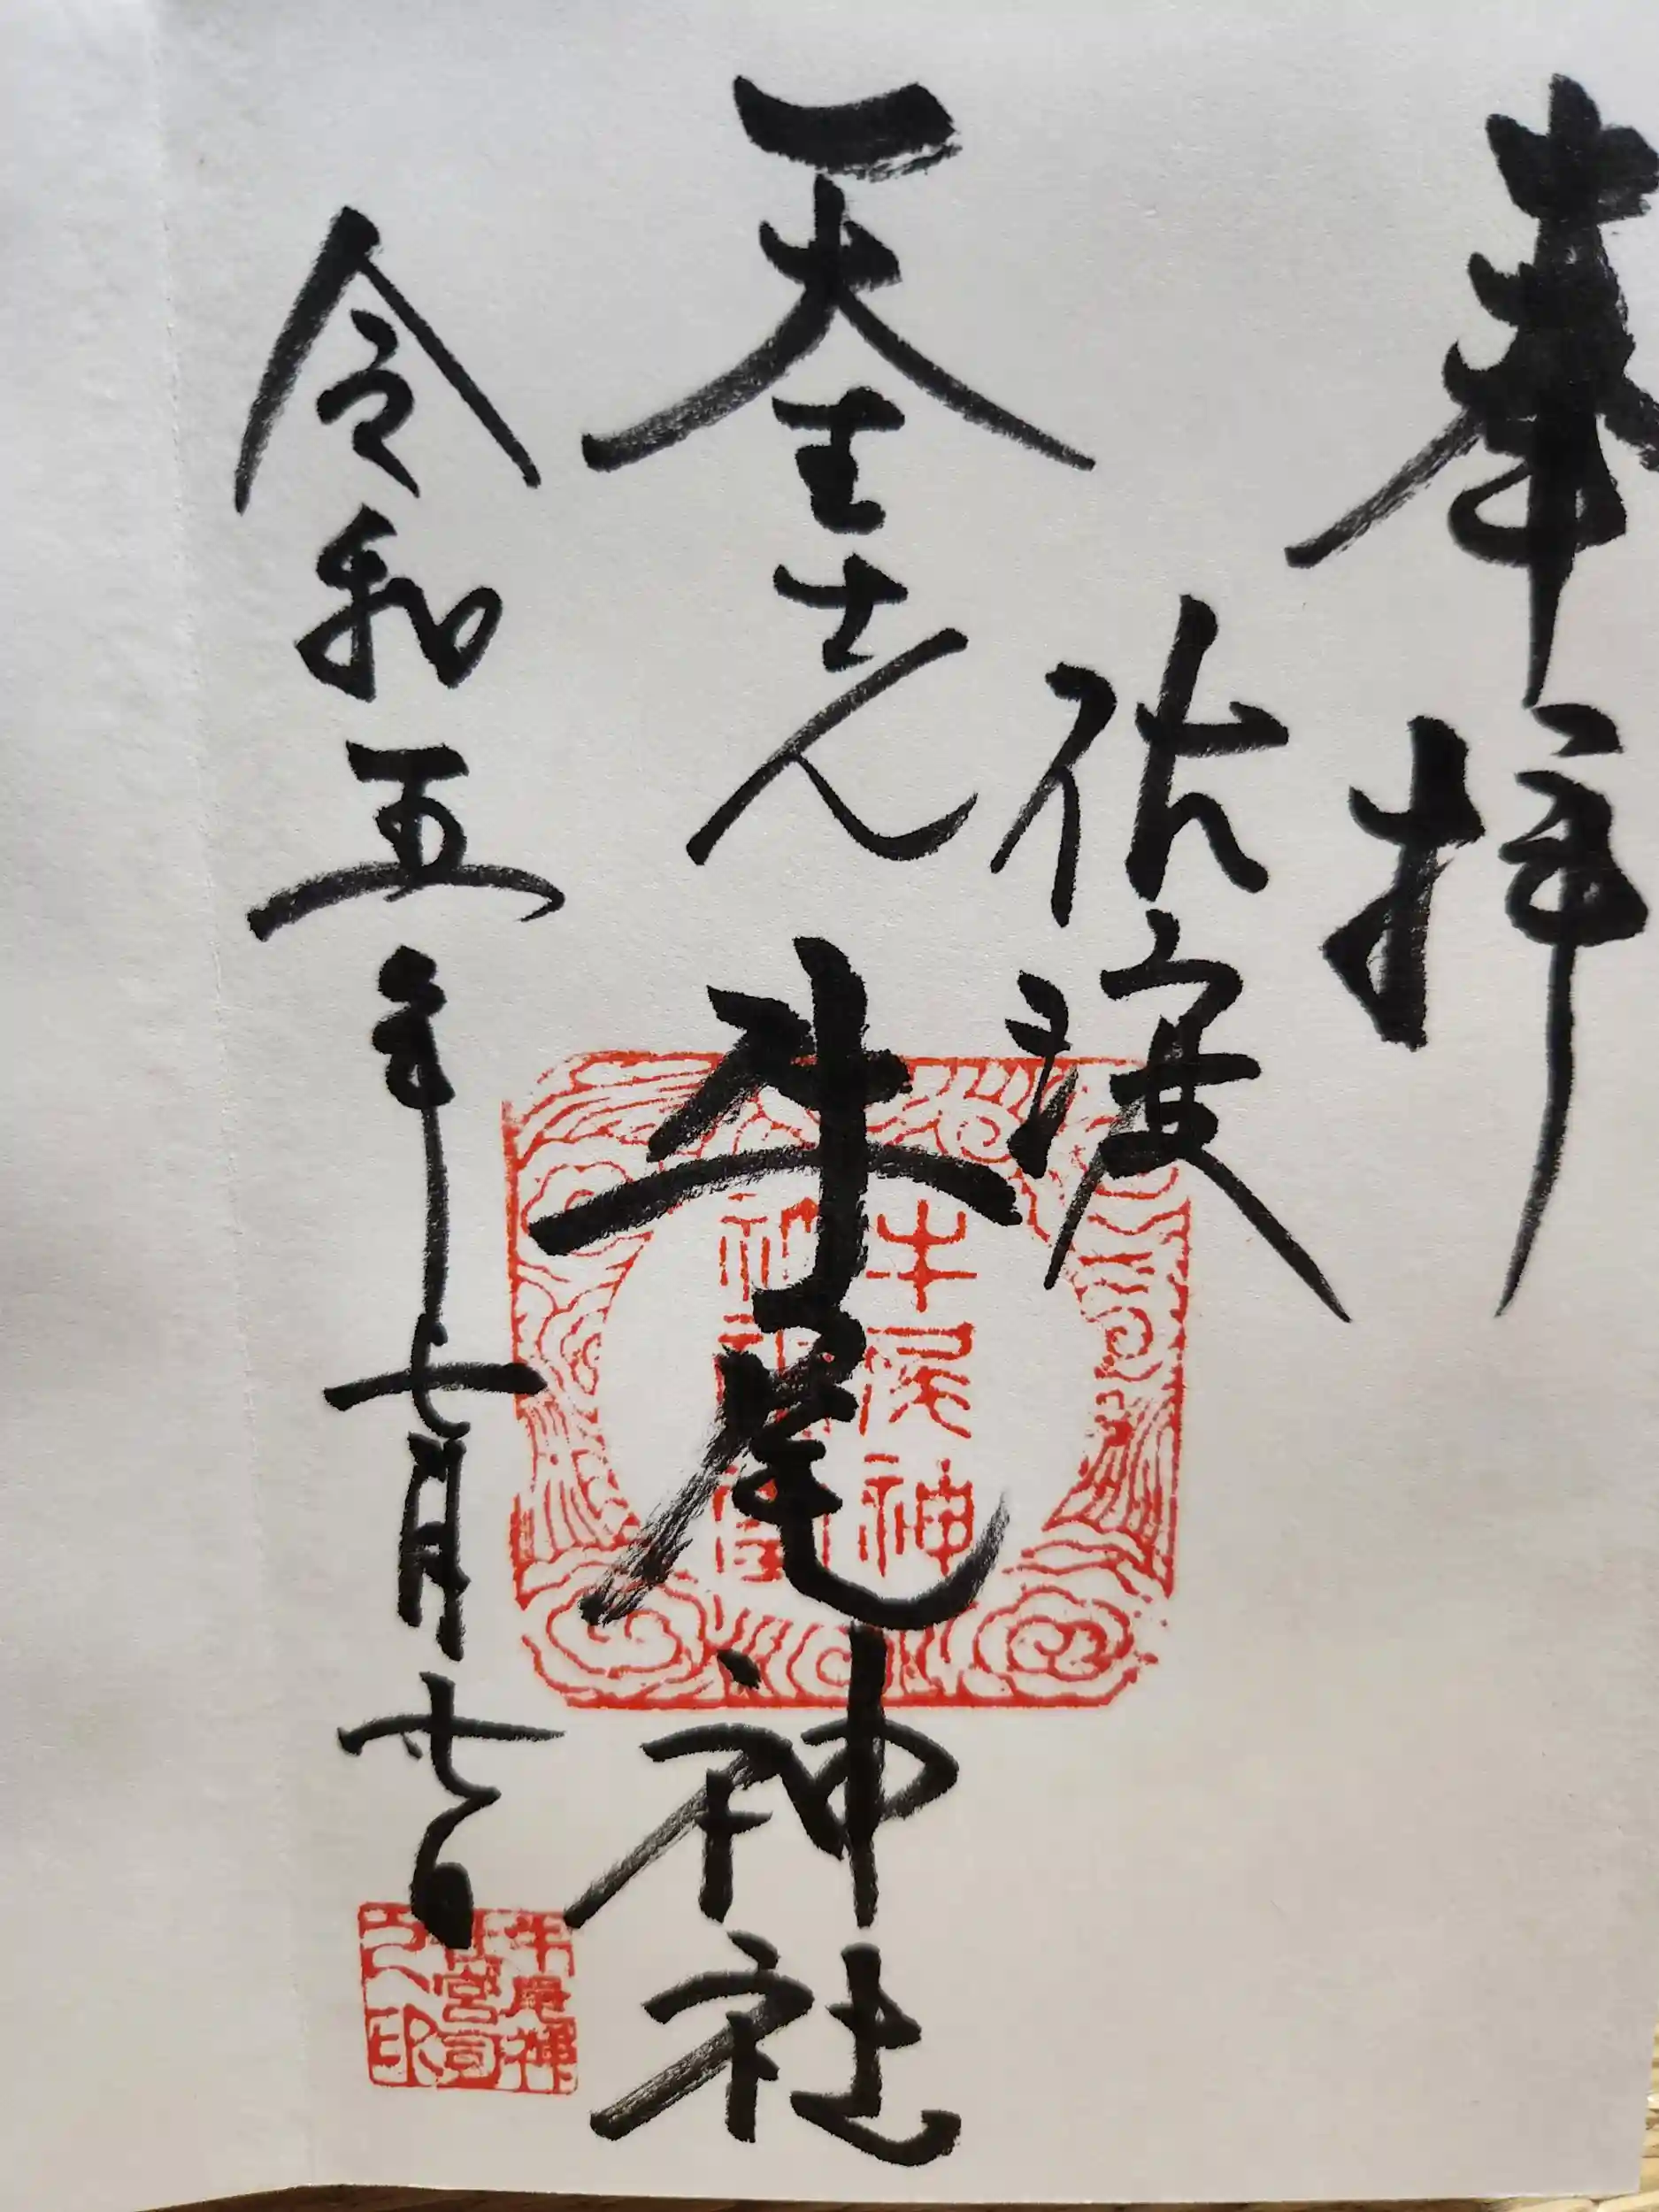 奉拝
佐渡
天王さん 牛尾神社
令和五年七月廿日
牛尾神
牛尾神
社宮司
之印